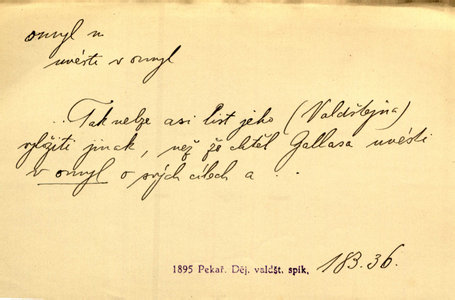 omyl m
uvésti v omyl
.. Tak nelze asi list jeho (Valdštejna)
vyložiti jinak, než že chtěl Gallasa uvésti
v omyl o svých cílech a ...
1895 Pekař. Děj. valdšt. spik, 183.36.